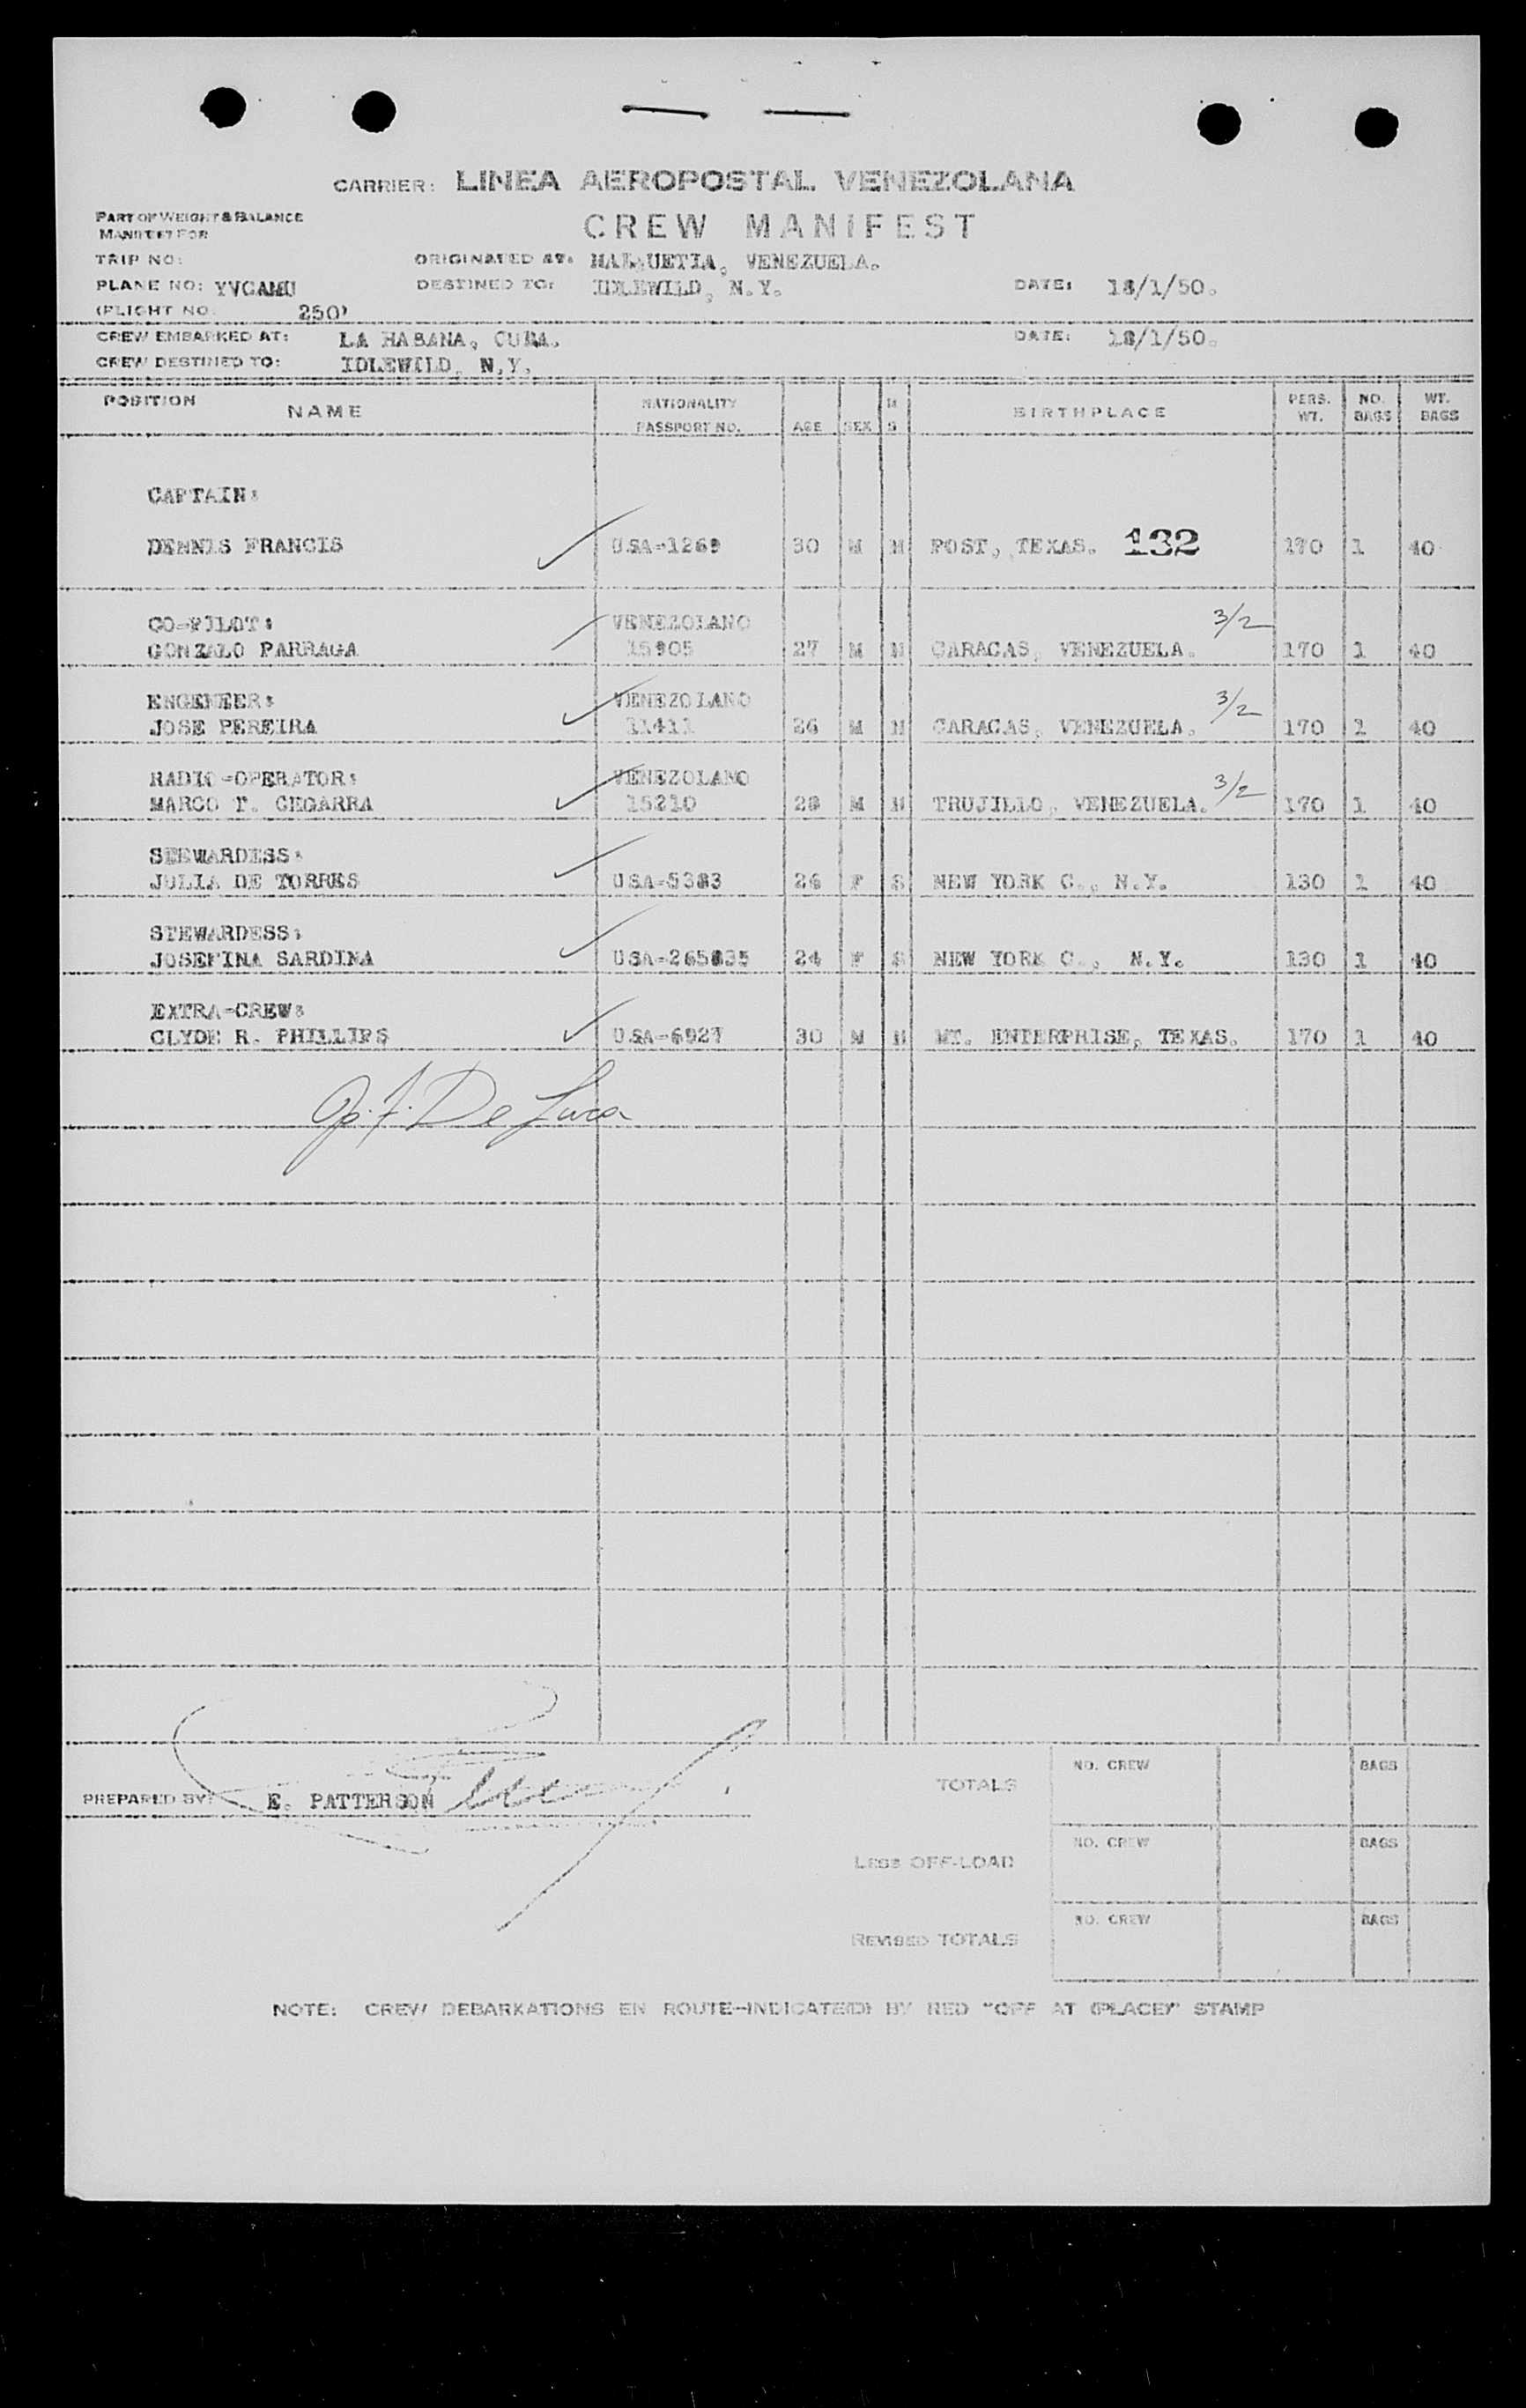 CARRIER: LINEA AEROPOSTAL VENEZOLANA
PART OF WEIGHT & BALANCE
MANIFEST FOR
CREW MANIFEST
TRIP NO: ORIGINATED AT: MAIQUETIA, VENEZUELA.
PLANE NO: YVCAMU DESTINED TO: IDLEWILD, N.Y. DATE: 18/1/50.
(FLIGHT NO. 250)
CREW EMBARKED AT: LA HABANA, CUBA. DATE: 18/1/50.
CREW DESTINED TO: IDLEWILD, N.Y.
POSITION NAME NATIONALITY PASSPORT NO. AGE SEX M S BIRTHPLACE PERS. WT. NO. BAGS WT. BAGS
CAPTAIN:
DENNIS FRANCIS USA-1269 30 M M POST, TEXAS. 132 170 1 40
CO-PILOT: VENEZOLANO 3/2
GONZALO PARRAGA 15905 27 M M CARACAS, VENEZUELA. 170 1 40
ENGENEER: VENEZOLANO 3/2
JOSE PEREIRA 11411 26 M M CARACAS, VENEZUELA. 170 1 40
RADIO-OPERATOR: VENEZOLANO 3/2
MARCO T. CEGARRA 15210 28 M M TRUJILLO, VENEZUELA. 170 1 40
STEWARDESS:
JULIA DE TORRES 26 F S NEW YORK C., N.Y. 130 1 40
STEWARDESS:
JOSEFINA SARDINA 24 F S NEW YORK C., N.Y. 130 1 40
EXTRA-CREW:
CLYDE R. PHILLIPS 30 M M MT. ENTERPRISE, TEXAS. 170 1 40
De Luca
TOTALS NO. CREW BAGS
PREPARED BY: E. PATTERSON
LESS OFF-LOAD NO. CREW BAGS
REVISED TOTALS NO. CREW BAGS
NOTE: CREW DEBARKATIONS EN ROUTE-INDICATE(D) BY RED "OFF AT (PLACE)" STAMP